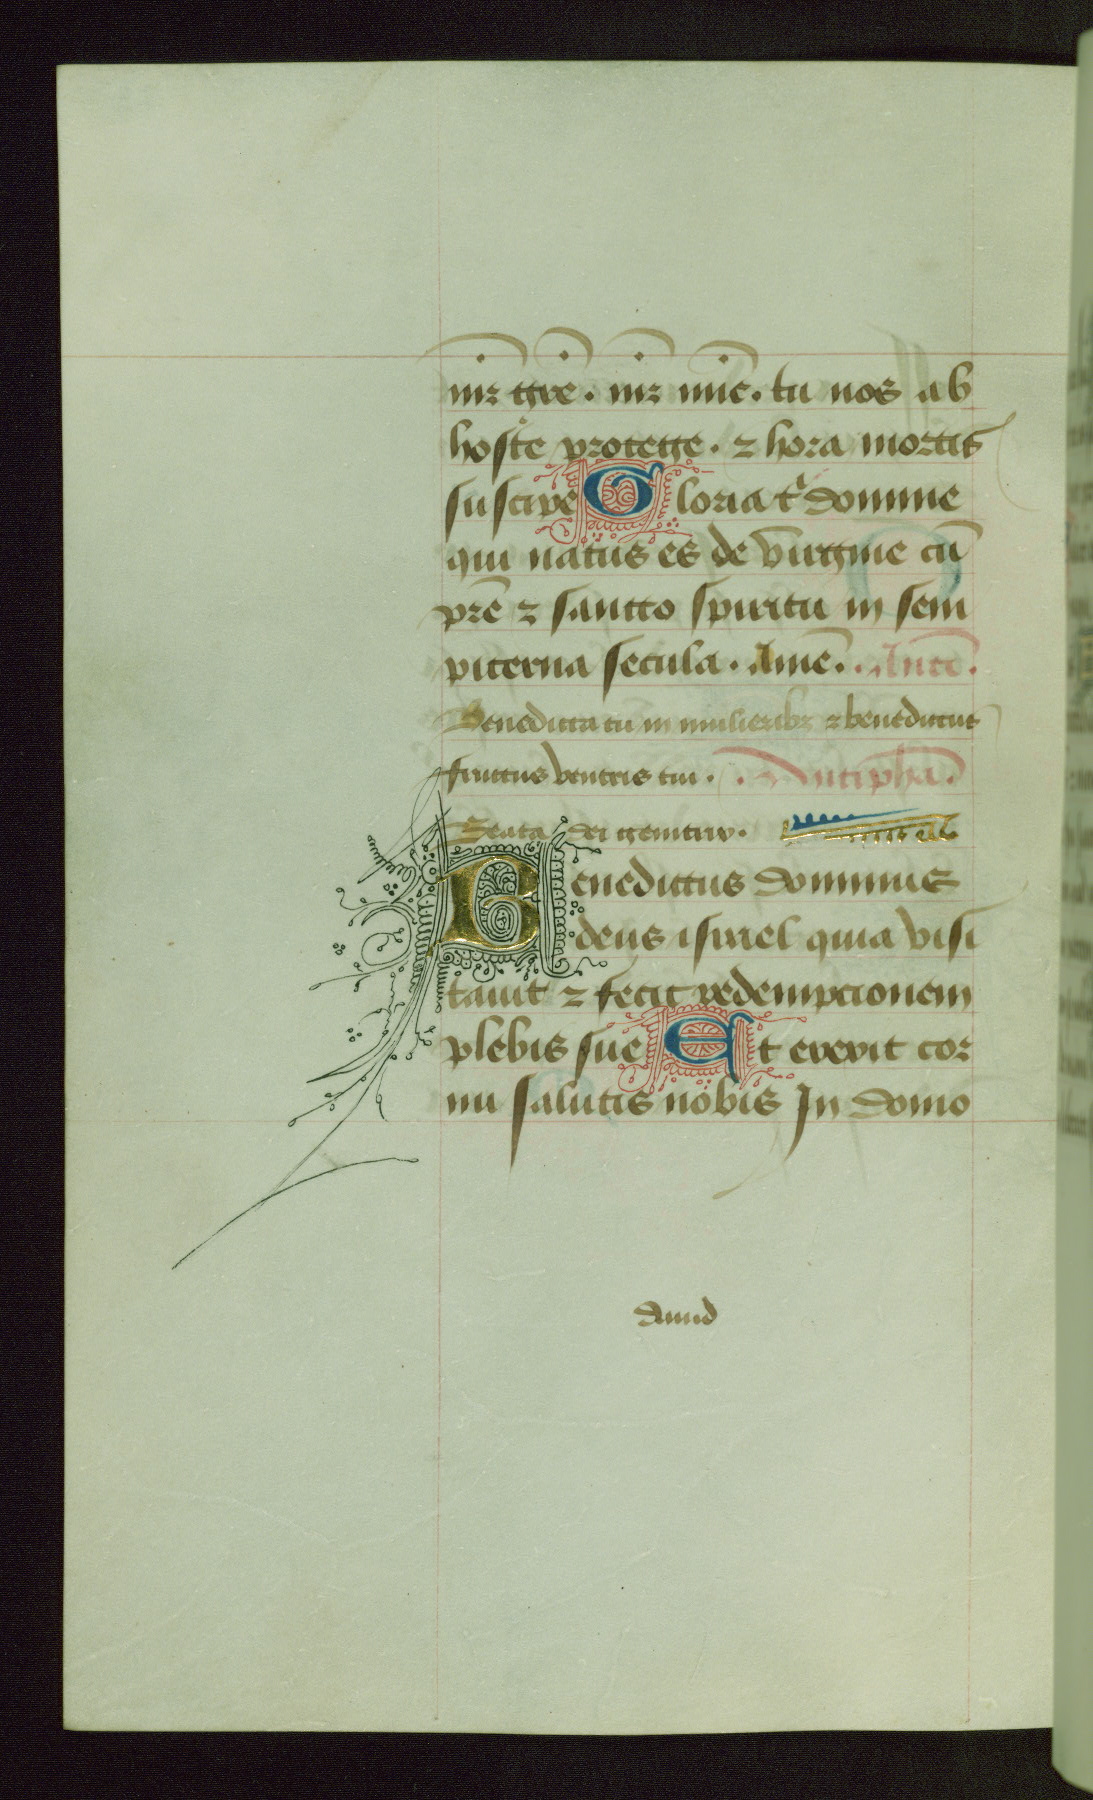 mr̄ grē. mr̄ mīe. tu nos ab
hoste protege. ⁊ hora mortis
suscipe Gloria t̄ domine
qui natus es de virgine cū
prē ⁊ sancto spiritu in sem
piterna secula. Amē. Antē.
Benedicta tu in mulieribꝫ ⁊ benedictus
fructus ventris tui. Antipha.
Beata dei genitrix.
Benedictus dominus
deus israel quia visi
tauit ⁊ fecit redempcionem
plebis sue Et erexit cor
nu salutis nobis In domo
dauid